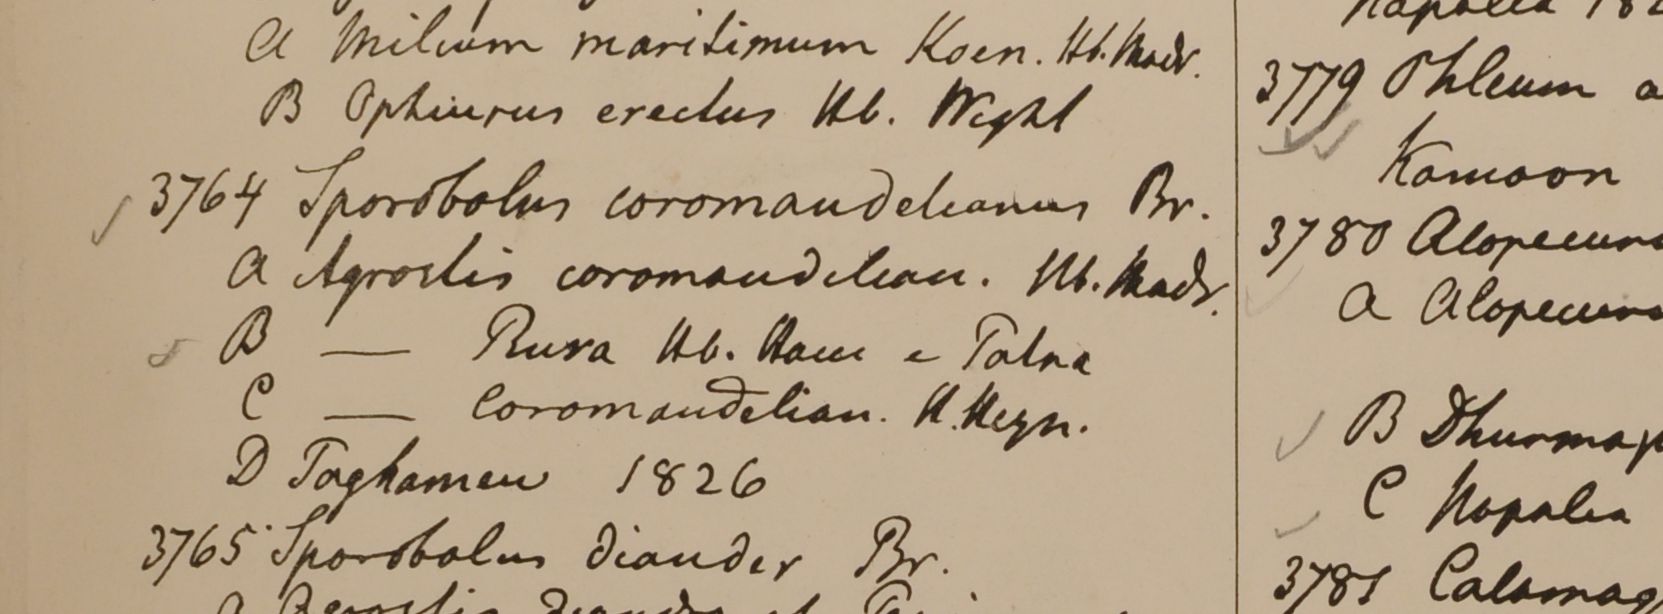 A Milium maritimum Koen. Hb. Madr.
B Ophiurus erectus Hb. Wight
3764 Sporobolus coromandelianus Br.
A Agrostis coromandelian. Hb. Madr.
B — Rura Hb. Ham e Patna
C — Coromandelian. H. Heyn.
D Taghamew 1826
3765 Sporobolus diander Br.
A Agrostis diandra
Napalia 182
3779 Phleum a
Kamaon
3780 Alopecuru
A Alopecuru
B Dhurmap
C Napalia
3781 Calamag